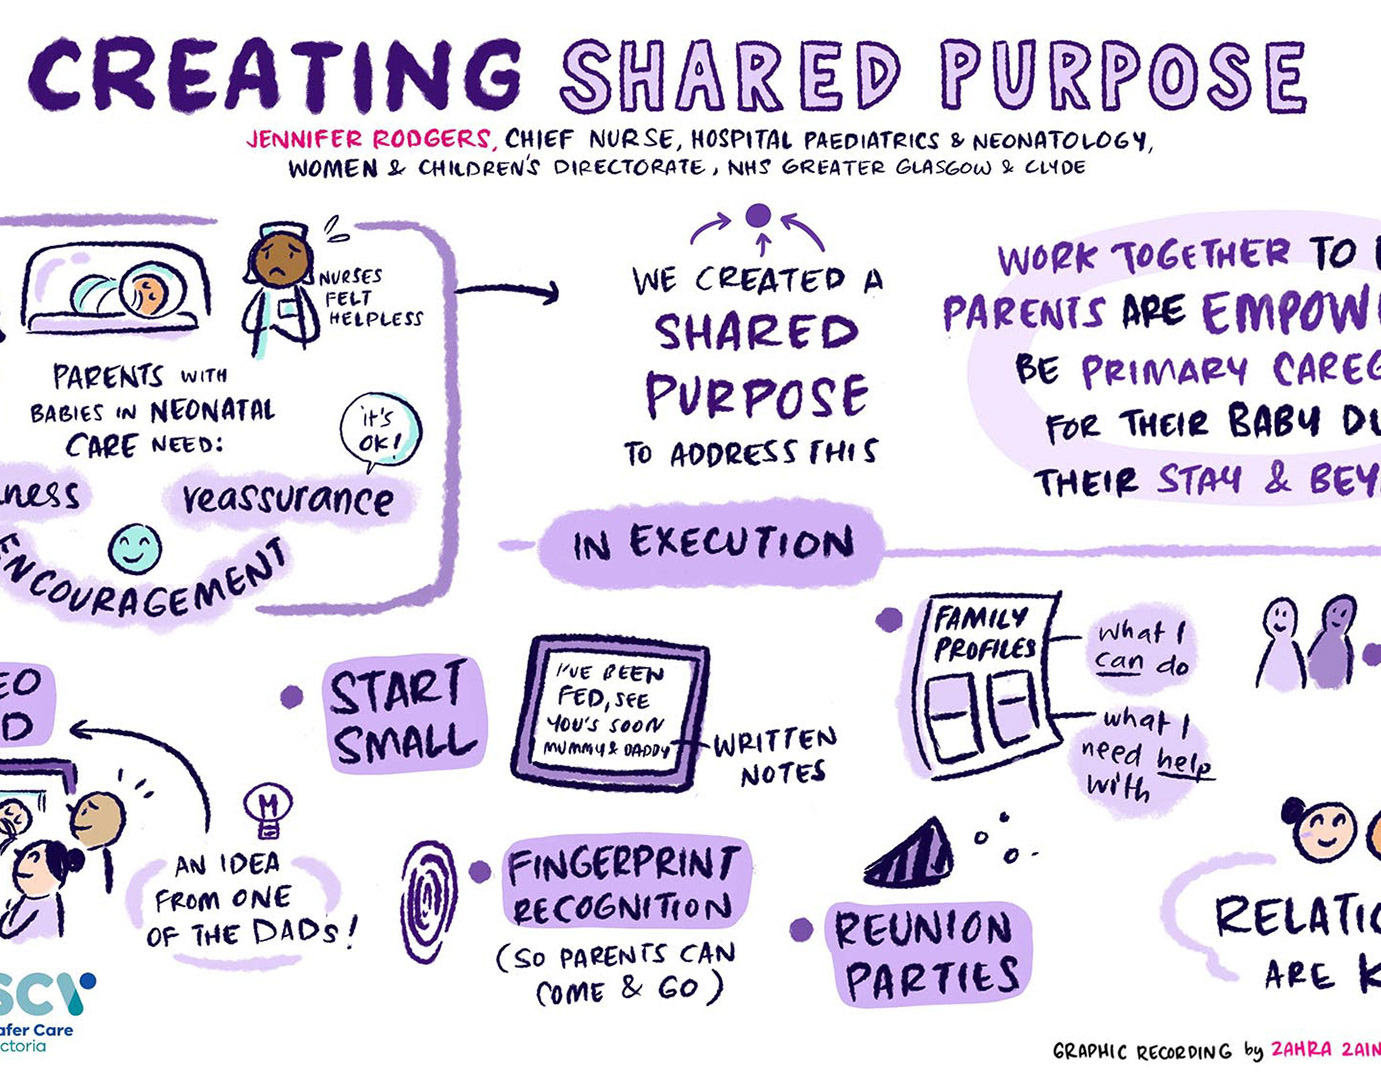 CREATING SHARED PURPOSE
JENNIFER RODGERS, CHIEF NURSE, HOSPITAL PAEDIATRICS & NEONATOLOGY,
WOMEN & CHILDREN'S DIRECTORATE, NHS GREATER GLASGOW & CLYDE
NURSES
FELT
HELPLESS
PARENTS WITH
BABIES IN NEONATAL
CARE NEED:
it's
OK!
ness
reassurance
ENCOURAGEMENT
WE CREATED A
SHARED
PURPOSE
TO ADDRESS THIS
WORK TOGETHER TO
PARENTS ARE EMPOW
BE PRIMARY CAREG
FOR THEIR BABY DU
THEIR STAY & BEY
IN EXECUTION
EO
D
AN IDEA
FROM ONE
OF THE DADS!
START
SMALL
I'VE BEEN
FED, SEE
YOU'S SOON
MUMMY & DADDY
WRITTEN
NOTES
FINGERPRINT
RECOGNITION
(SO PARENTS CAN
COME & GO)
FAMILY
PROFILES
what I
can do
what I
need help
with
REUNION
PARTIES
RELATIO
ARE K
SCV
afer Care
ctoria
GRAPHIC RECORDING by ZAHRA ZAIN